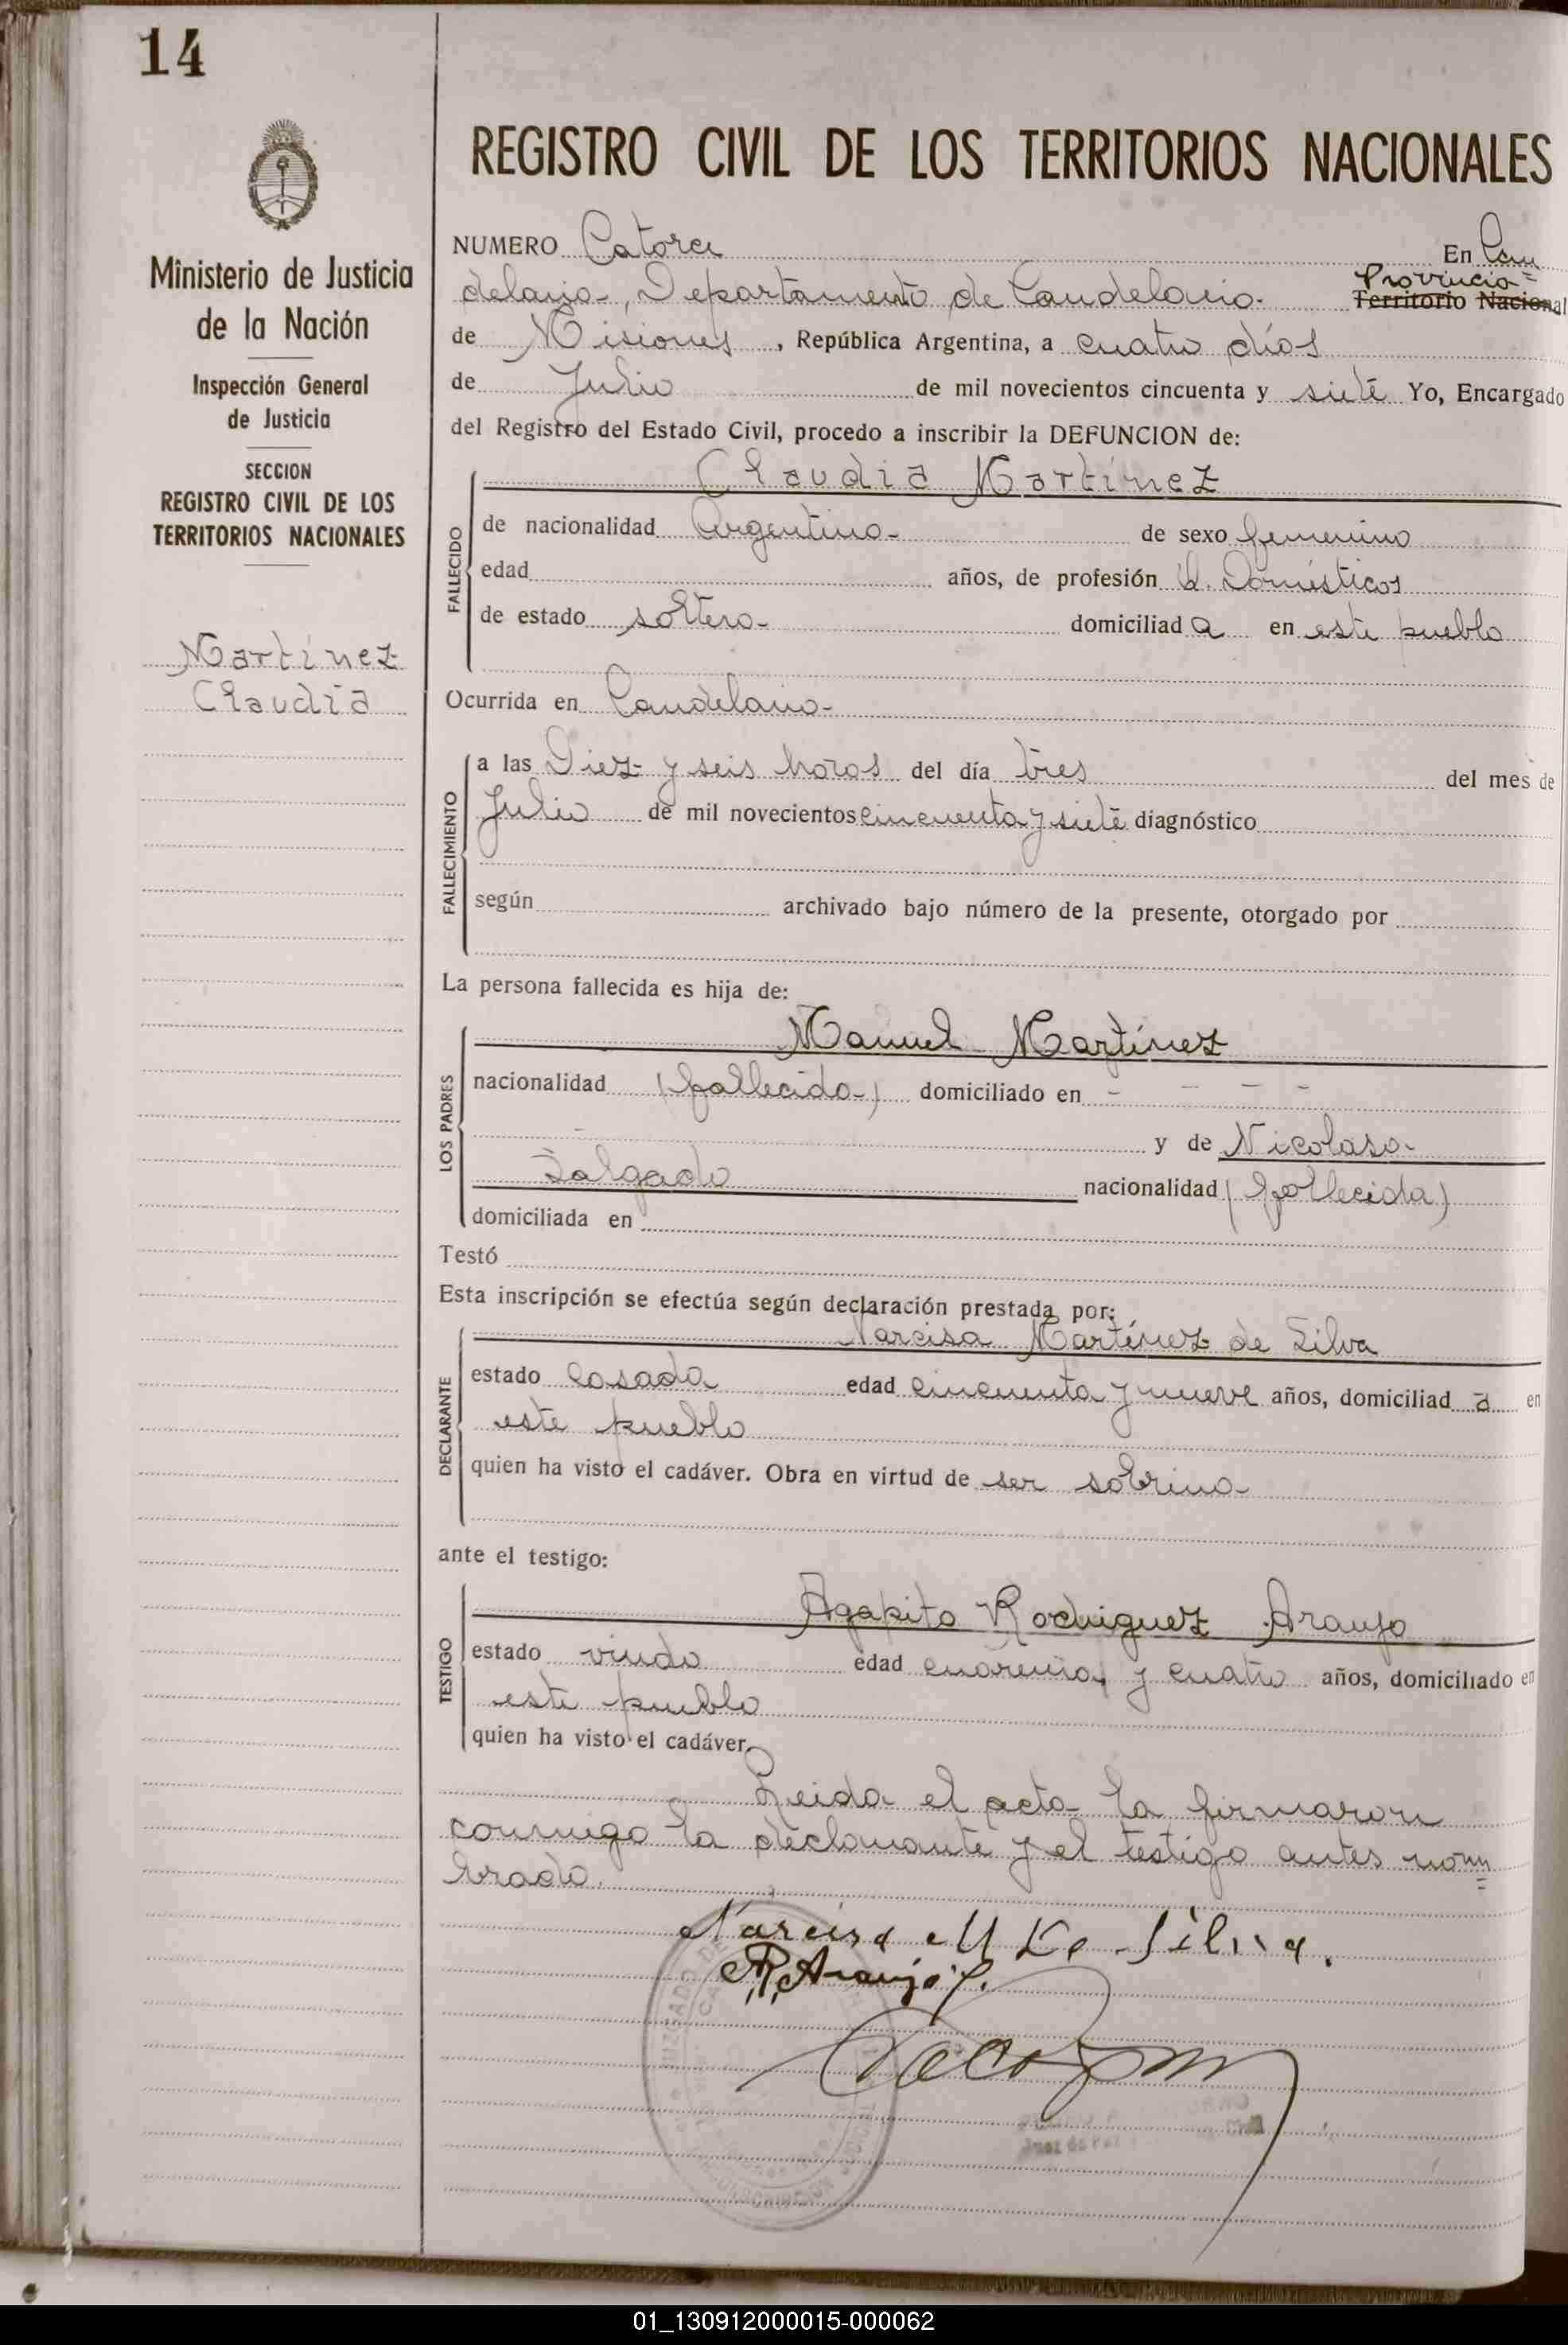 14
REGISTRO CIVIL DE LOS TERRITORIOS NACIONALES
Ministerio de Justicia
de la Nación
Inspección General
de Justicia
SECCION
REGISTRO CIVIL DE LOS
TERRITORIOS NACIONALES
Martínez
Claudia
NUMERO Catorce En Can
delaria, Departamento de Candelaria. Provincia= Territorio Nacional
de Misiones, República Argentina, a cuatro días
de Julio de mil novecientos cincuenta y siete Yo, Encargado
del Registro del Estado Civil, procedo a inscribir la DEFUNCION de:
Claudia Martínez
FALLECIDO
de nacionalidad Argentina de sexo femenino
edad años, de profesión Q. Domésticos
de estado soltera domiciliad a en este pueblo
Ocurrida en Candelaria
FALLECIMIENTO
a las Diez y seis horas del día tres del mes de
Julio de mil novecientos cincuenta y siete diagnóstico
según archivado bajo número de la presente, otorgado por
La persona fallecida es hija de:
LOS PADRES
Manuel Martínez
nacionalidad (fallecido) domiciliado en - - - -
y de Nicolasa
Salgado nacionalidad (fallecida)
domiciliada en
Testó
Esta inscripción se efectúa según declaración prestada por:
DECLARANTE
Narcisa Martínez de Silva
estado casada edad cincuenta y nueve años, domiciliad a en
este pueblo
quien ha visto el cadáver. Obra en virtud de ser sobrina
ante el testigo:
TESTIGO
Agapito Rodriguez Araujo
estado viudo edad cuarenta y cuatro años, domiciliado en
este pueblo
quien ha visto el cadáver.
Leida el acta la firmaron
conmigo la declarante y el testigo antes nom
brado.
Narcisa M de Silva.
A.R. Araujo
Juez de Paz
01_130912000015-000062